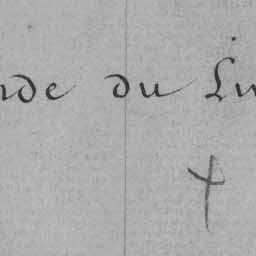 nde du Lu